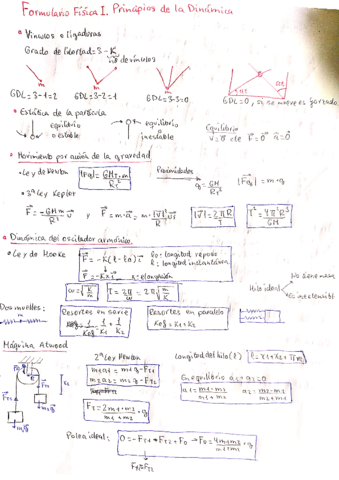 Formulario Física I. Principios de la Dinámica
Vínculos o ligaduras
Grado de libertad = 3 - K
nº de vínculos
m
GDL = 3-1 = 2
GDL = 3-2 = 1
GDL = 3-3 = 0
GDL = 0, si se mueve es forzado.
Estática de la partícula
equilibrio estable
equilibrio inestable
Equilibrio
v⃗ = 0⃗ cte F⃗ = 0⃗ a⃗ = 0⃗
Movimiento por acción de la gravedad
Ley de Newton
|Fg| = GM_T·m / R_T²
Proximidades
g = GM / R_T²
|F⃗g| = m·g
2ª Ley Kepler
F⃗ = -G Mm / R² u⃗
y
F⃗ = m·a⃗ = m·|v⃗|² / R u⃗
|v⃗| = 2πR / T
T² = 4π²R³ / GM
Dinámica del oscilador armónico.
Ley de Hooke
F⃗ = -K(l-l0) i⃗
F⃗ = -Kx i⃗
l0: longitud reposo
l: longitud instantánea
x = elongación
ω = √(K/m)
T = 2π/ω = 2π√(m/K)
Hilo ideal
No tiene masa
Es inextensible
Dos muelles:
Resortes en serie
1/Kef = 1/K1 + 1/K2
Resortes en paralelo
Kef = K1 + K2
Máquina Atwood
2ª Ley Newton
m1a1 = m1g - FT1
m2a2 = m2g - FT2
Longitud del hilo (l)
l = x1 + x2 + πR
En equilibrio a1 + a2 = 0
a1 = m1-m2 / m1+m2
a2 = m2-m1 / m1+m2
FT = 2m1·m2 / m1+m2 · g
Polea ideal:
0 = -FT1 - FT2 + F0 → F0 = 4m1m2 / m1+m2 · g
FT1 = FT2